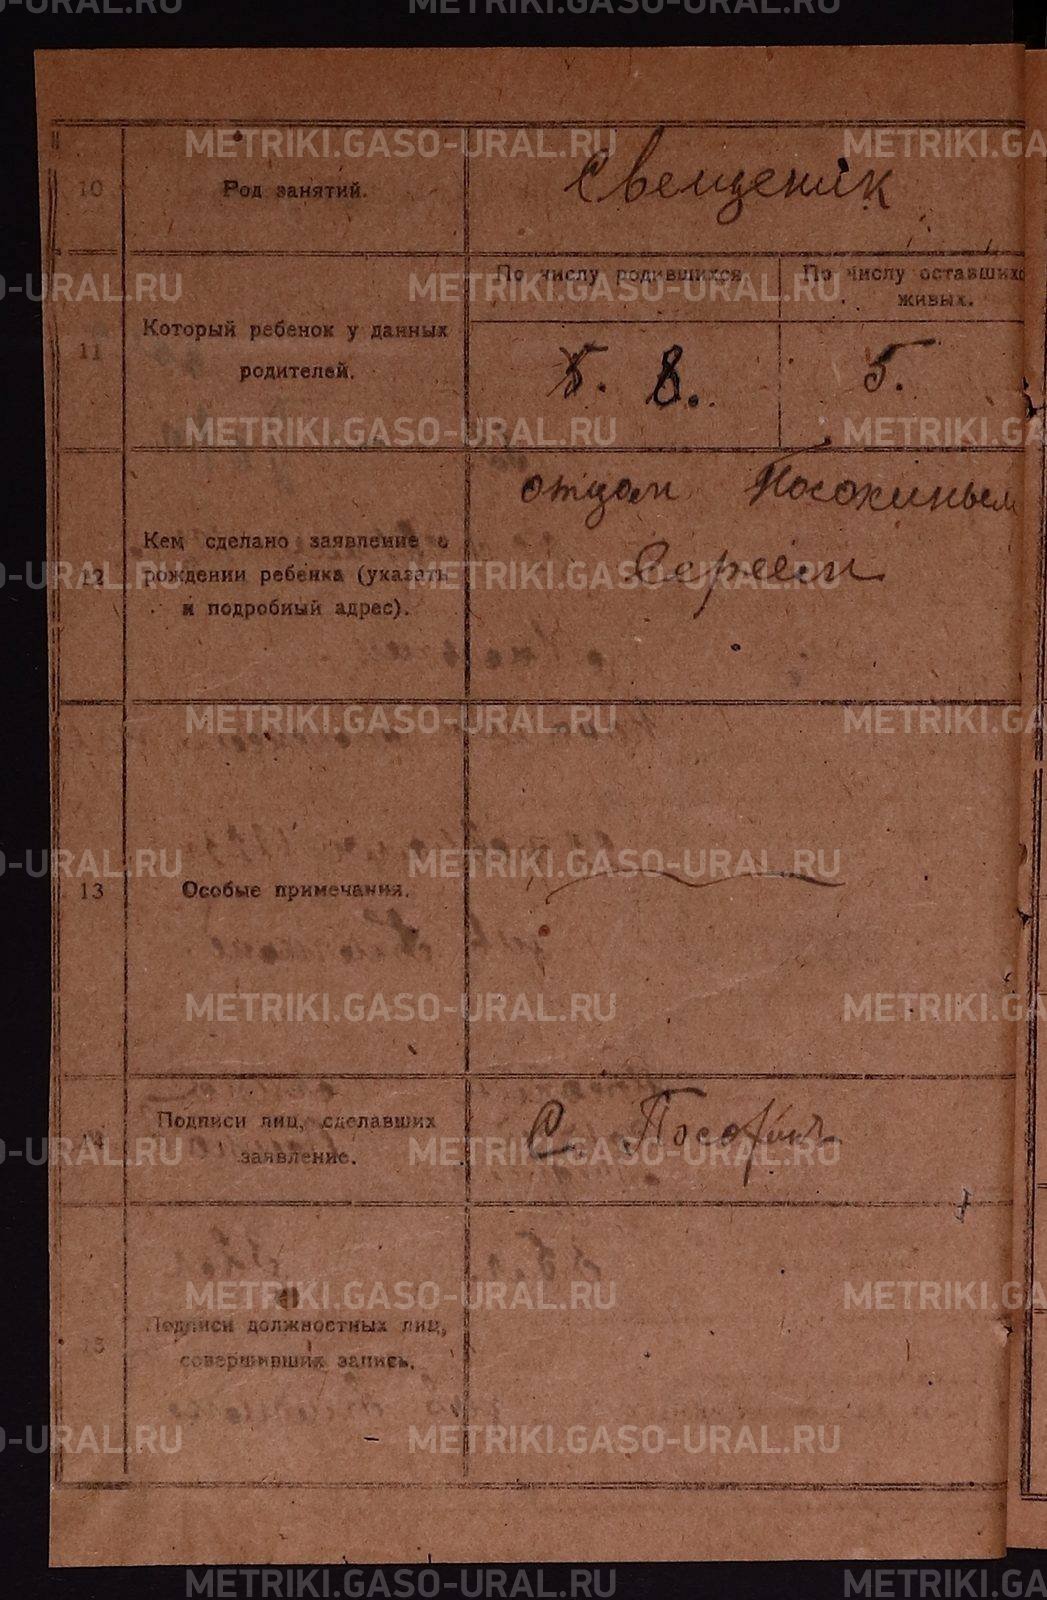 METRIKI.GASO-URAL.RU
10
Род занятий.
Свещеник
11
Который ребенок у данных
родителей.
По числу родившихся
По числу оставшихс
живых.
5. 8.
5.
12
Кем сделано заявление о
рождении ребенка (указать
и подробный адрес).
отцом Посохиным
Сергеем
13
Особые примечания.
14
Подписи лиц, сделавших
заявление.
С. Посохинъ
15
Подписи должностных лиц,
совершивших запись.